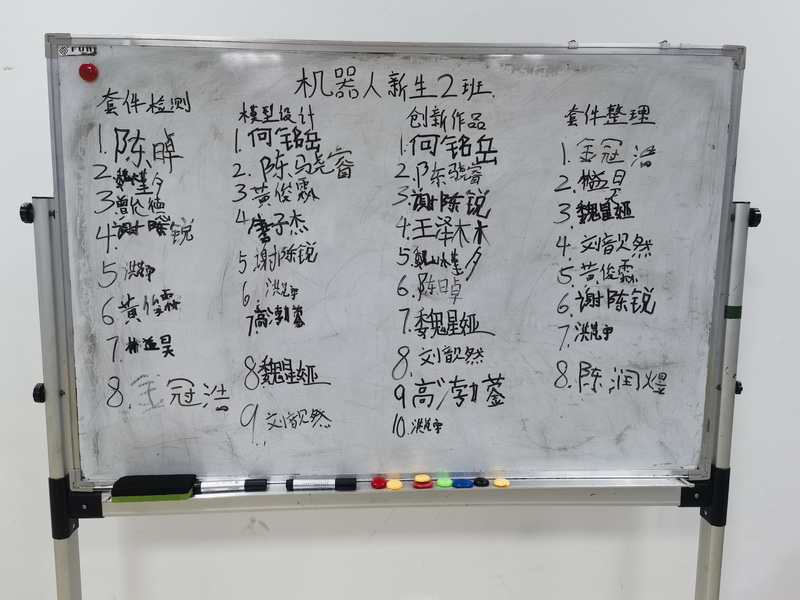 机器人新生2班
套件检测
1.陈晫
2.
3曾伦德
4.谢陈锐
5
6黄俊霖
7.林益昊
8.金冠浩
模型设计
1.何铭岳
2.陈骁睿
3黄俊霖
4.詹子杰
5谢陈锐
6.洪梓中
7高渤蓥
8魏星娅
9刘歆然
创新作品
1.何铭岳
2.陈骁睿
3.谢陈锐
4.王泽木木
5.
6.陈晫
7.魏星娅
8.刘歆然
9高渤蓥
10.
套件整理
1.金冠浩
2.林益昊
3.魏星娅
4.刘歆然
5.黄俊霖
6.谢陈锐
7.
8.陈润煜